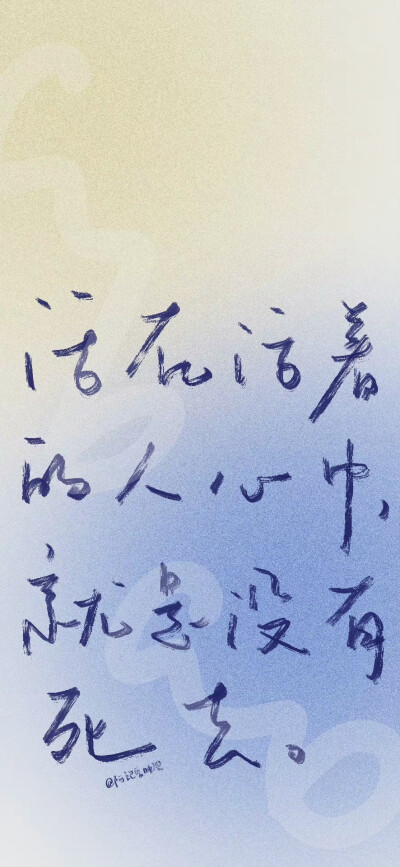 活在活着
的人心中，
就是没有
死去。